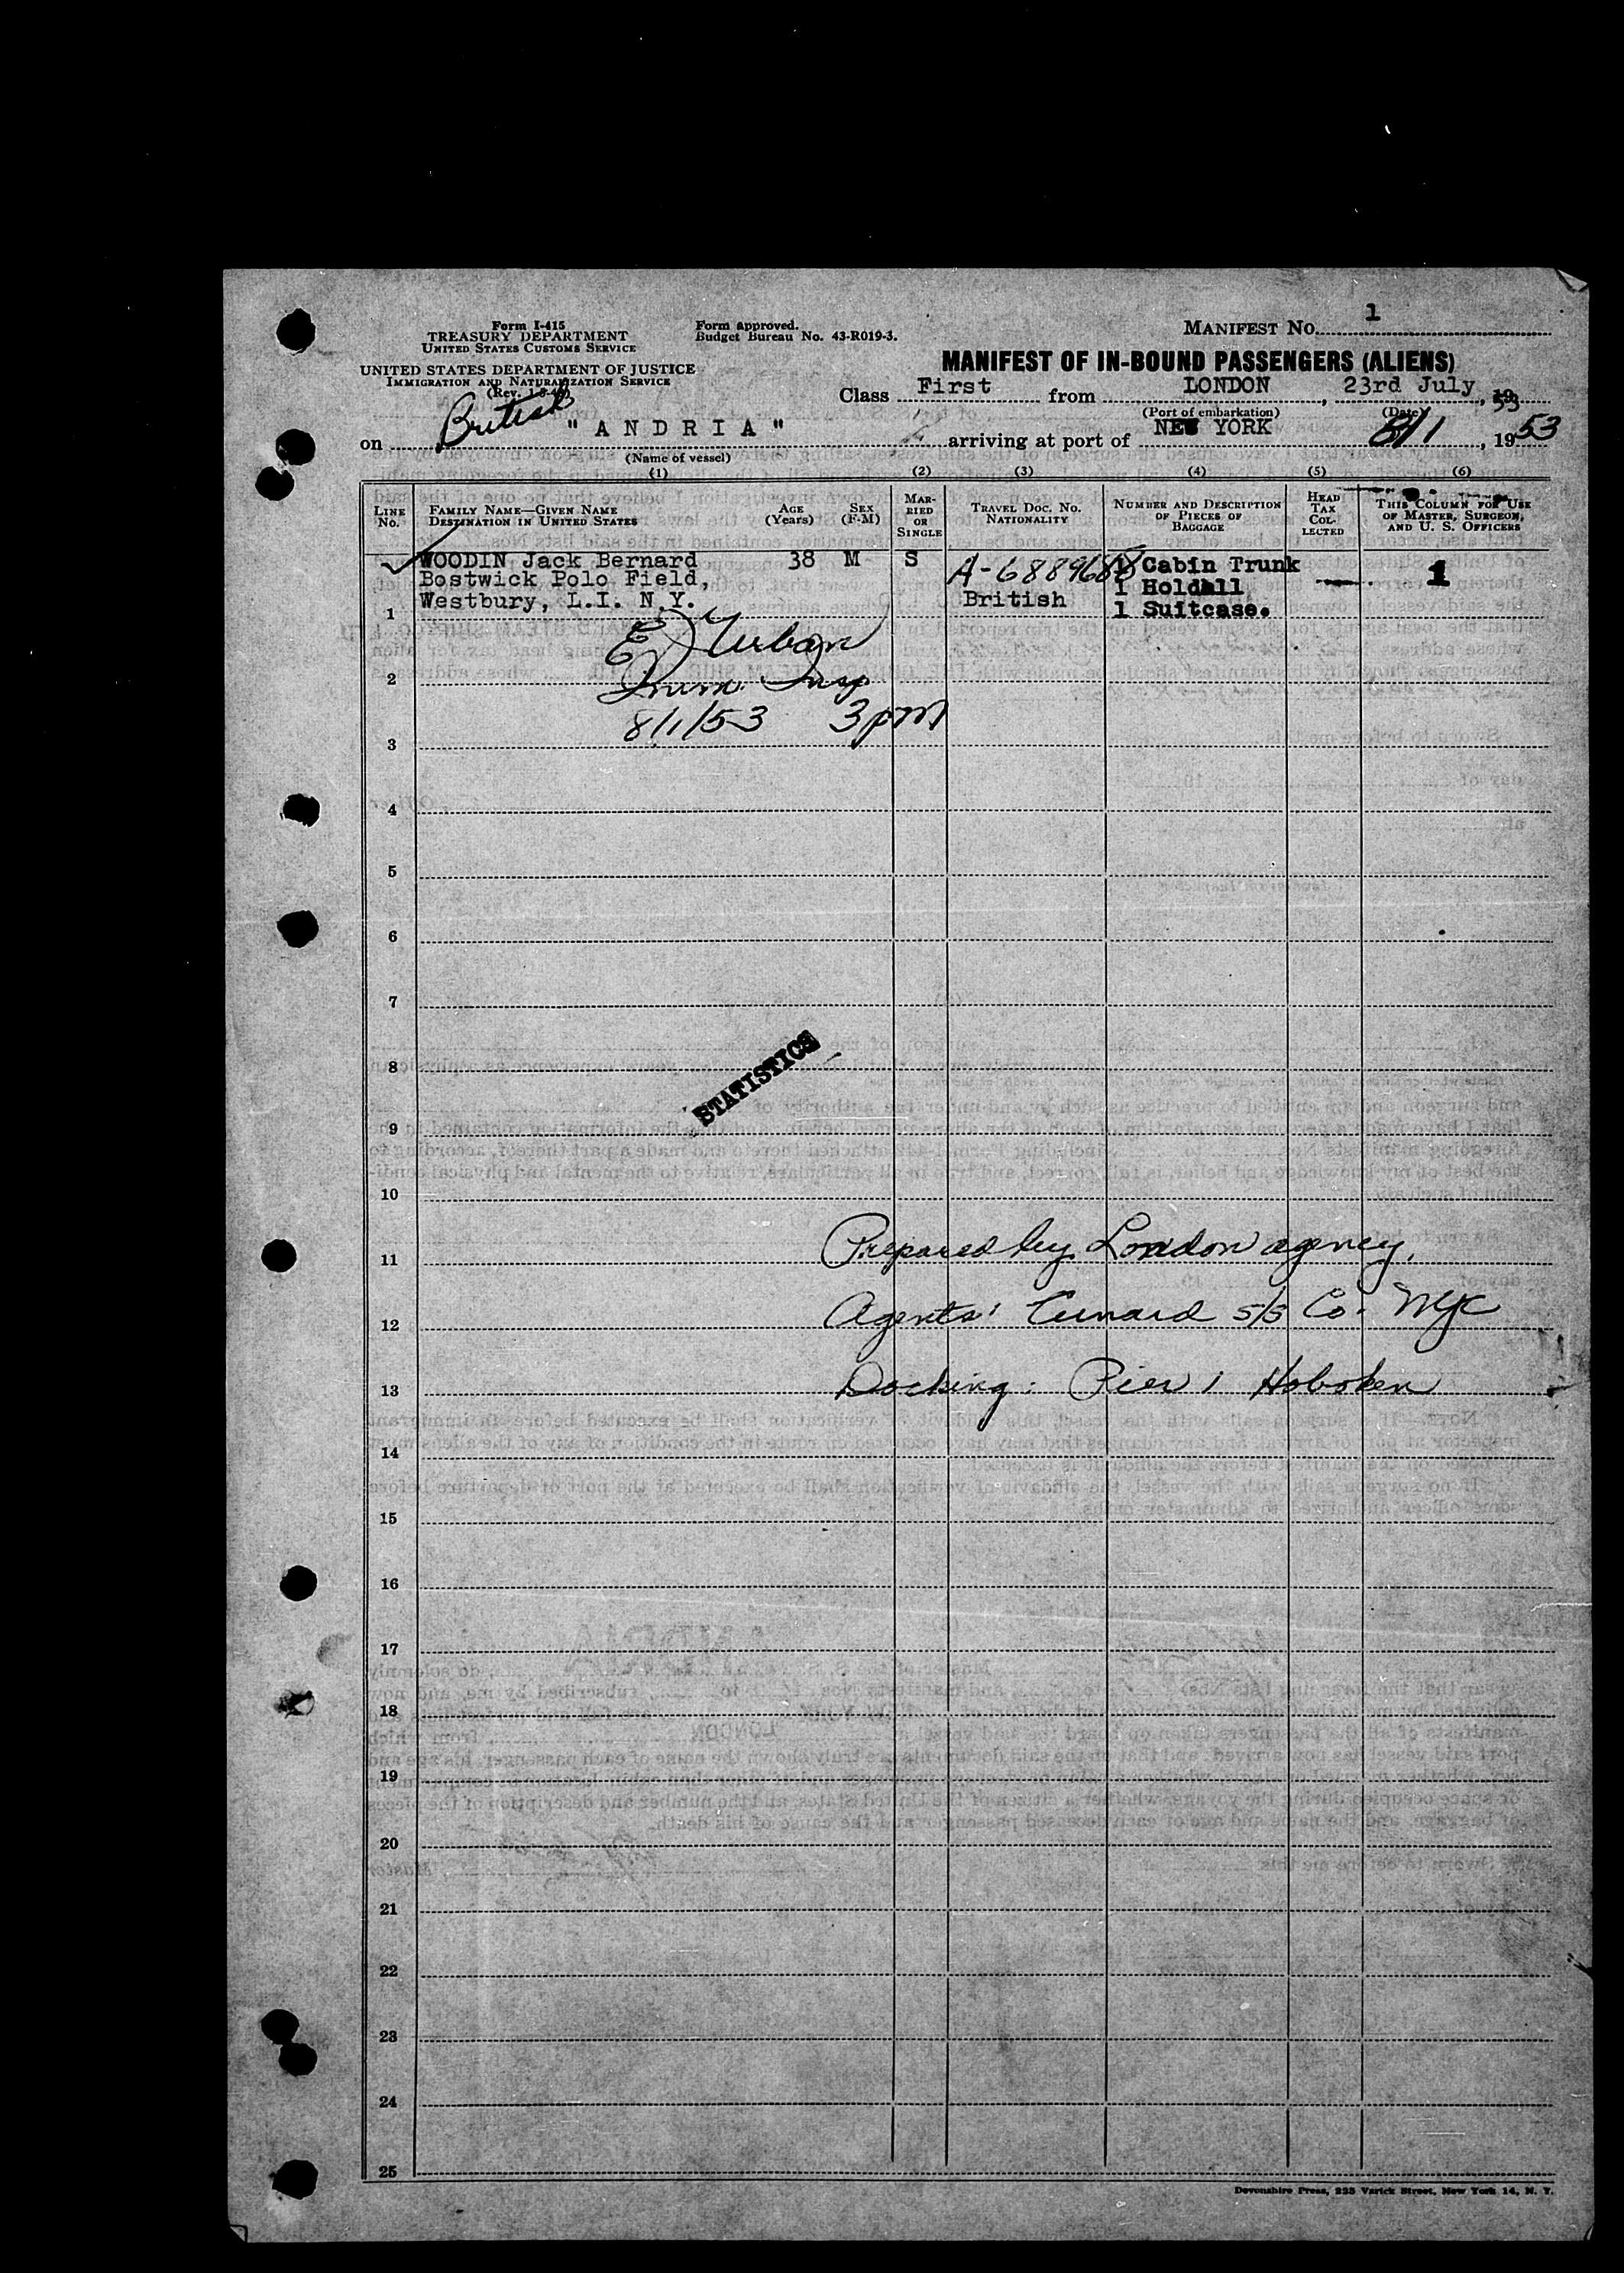 Form I-415
TREASURY DEPARTMENT
UNITED STATES CUSTOMS SERVICE
UNITED STATES DEPARTMENT OF JUSTICE
IMMIGRATION AND NATURALIZATION SERVICE
Form approved.
Budget Bureau No. 43-R019-3.
MANIFEST NO. 1
MANIFEST OF IN-BOUND PASSENGERS (ALIENS)
Class First from LONDON, 23rd July, 1953
(Port of embarkation) (Date)
British
on "ANDRIA" arriving at port of NEW YORK 8/1, 1953
(Name of vessel)
(1) (2) (3) (4) (5) (6)
LINE NO. FAMILY NAME—GIVEN NAME DESTINATION IN UNITED STATES AGE (YEARS) SEX (F-M) MARRIED OR SINGLE TRAVEL DOC. NO. NATIONALITY NUMBER AND DESCRIPTION OF PIECES OF BAGGAGE HEAD TAX COLLECTED THIS COLUMN FOR USE OF MASTER, SURGEON, AND U. S. OFFICERS
WOODIN Jack Bernard 38 M S A-6889688 1 Cabin Trunk 1
Bostwick Polo Field, 1 Holdall
Westbury, L.I. N.Y. British 1 Suitcase.
1
E J Urban
2
Imm. Insp
8/1/53 3 pm
3
4
5
6
7
STATISTICS
8
9
10
Prepared by London agency.
11
Agents: Cunard S/S Co. NYC
12
Docking: Pier 1 Hoboken
13
14
15
16
17
18
19
20
21
22
23
24
25
Devonshire Press, 225 Varick Street, New York 14, N. Y.